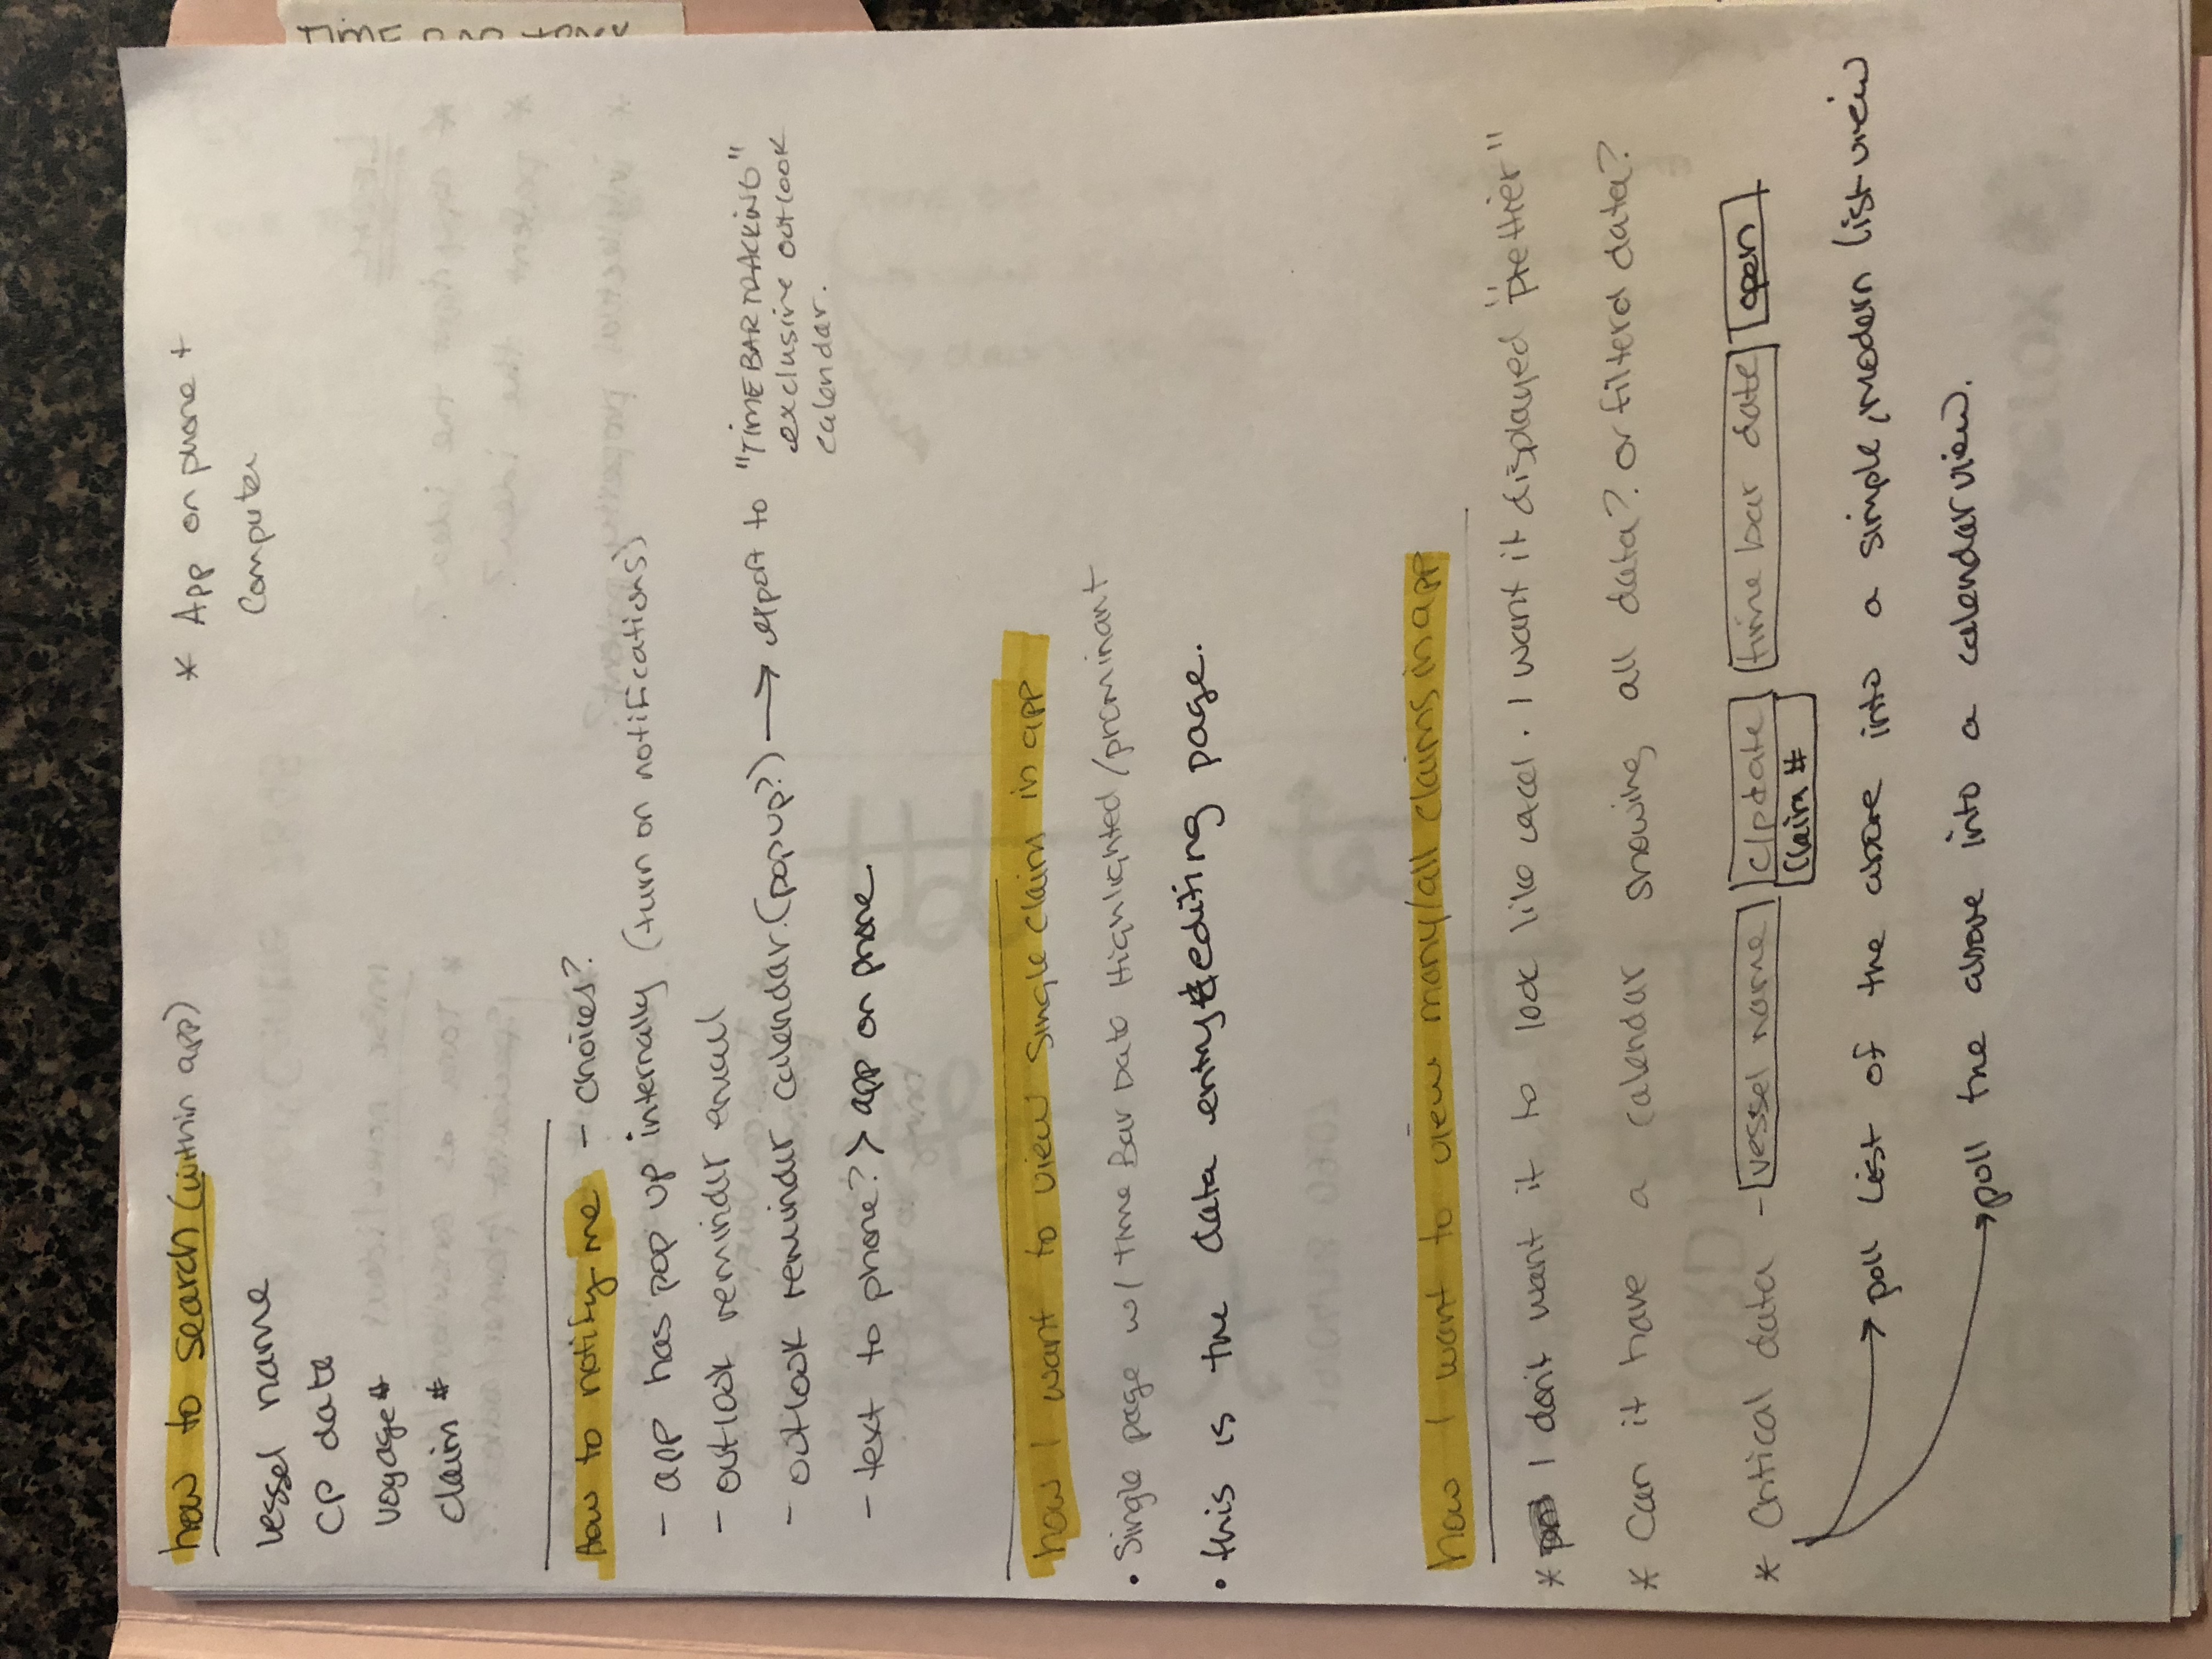 how to search (within app)
* App on phone +
Computer
vessel name
CP date
voyage #
claim #
how to notify me - choices?
- app has pop up internally (turn on notifications)
- outlook reminder email
- outlook reminder calendar. (popup?) → export to "TIMEBARTRACKING"
exclusive outlook
calendar.
- text to phone? > app on phone.
how I want to view single claim in app
• Single page w/ Time Bar Date Highlighted/prominant
• this is the data entry & editing page.
how I want to view many/all claims in app
* I don't want it to look like excel. I want it displayed "prettier"
* Can it have a calendar showing all data? or filterd data?
* Critical data - vessel name c/p date time bar date open
Claim #
→ poll list of the above into a simple, modern list view
→ poll the above into a calendar view.